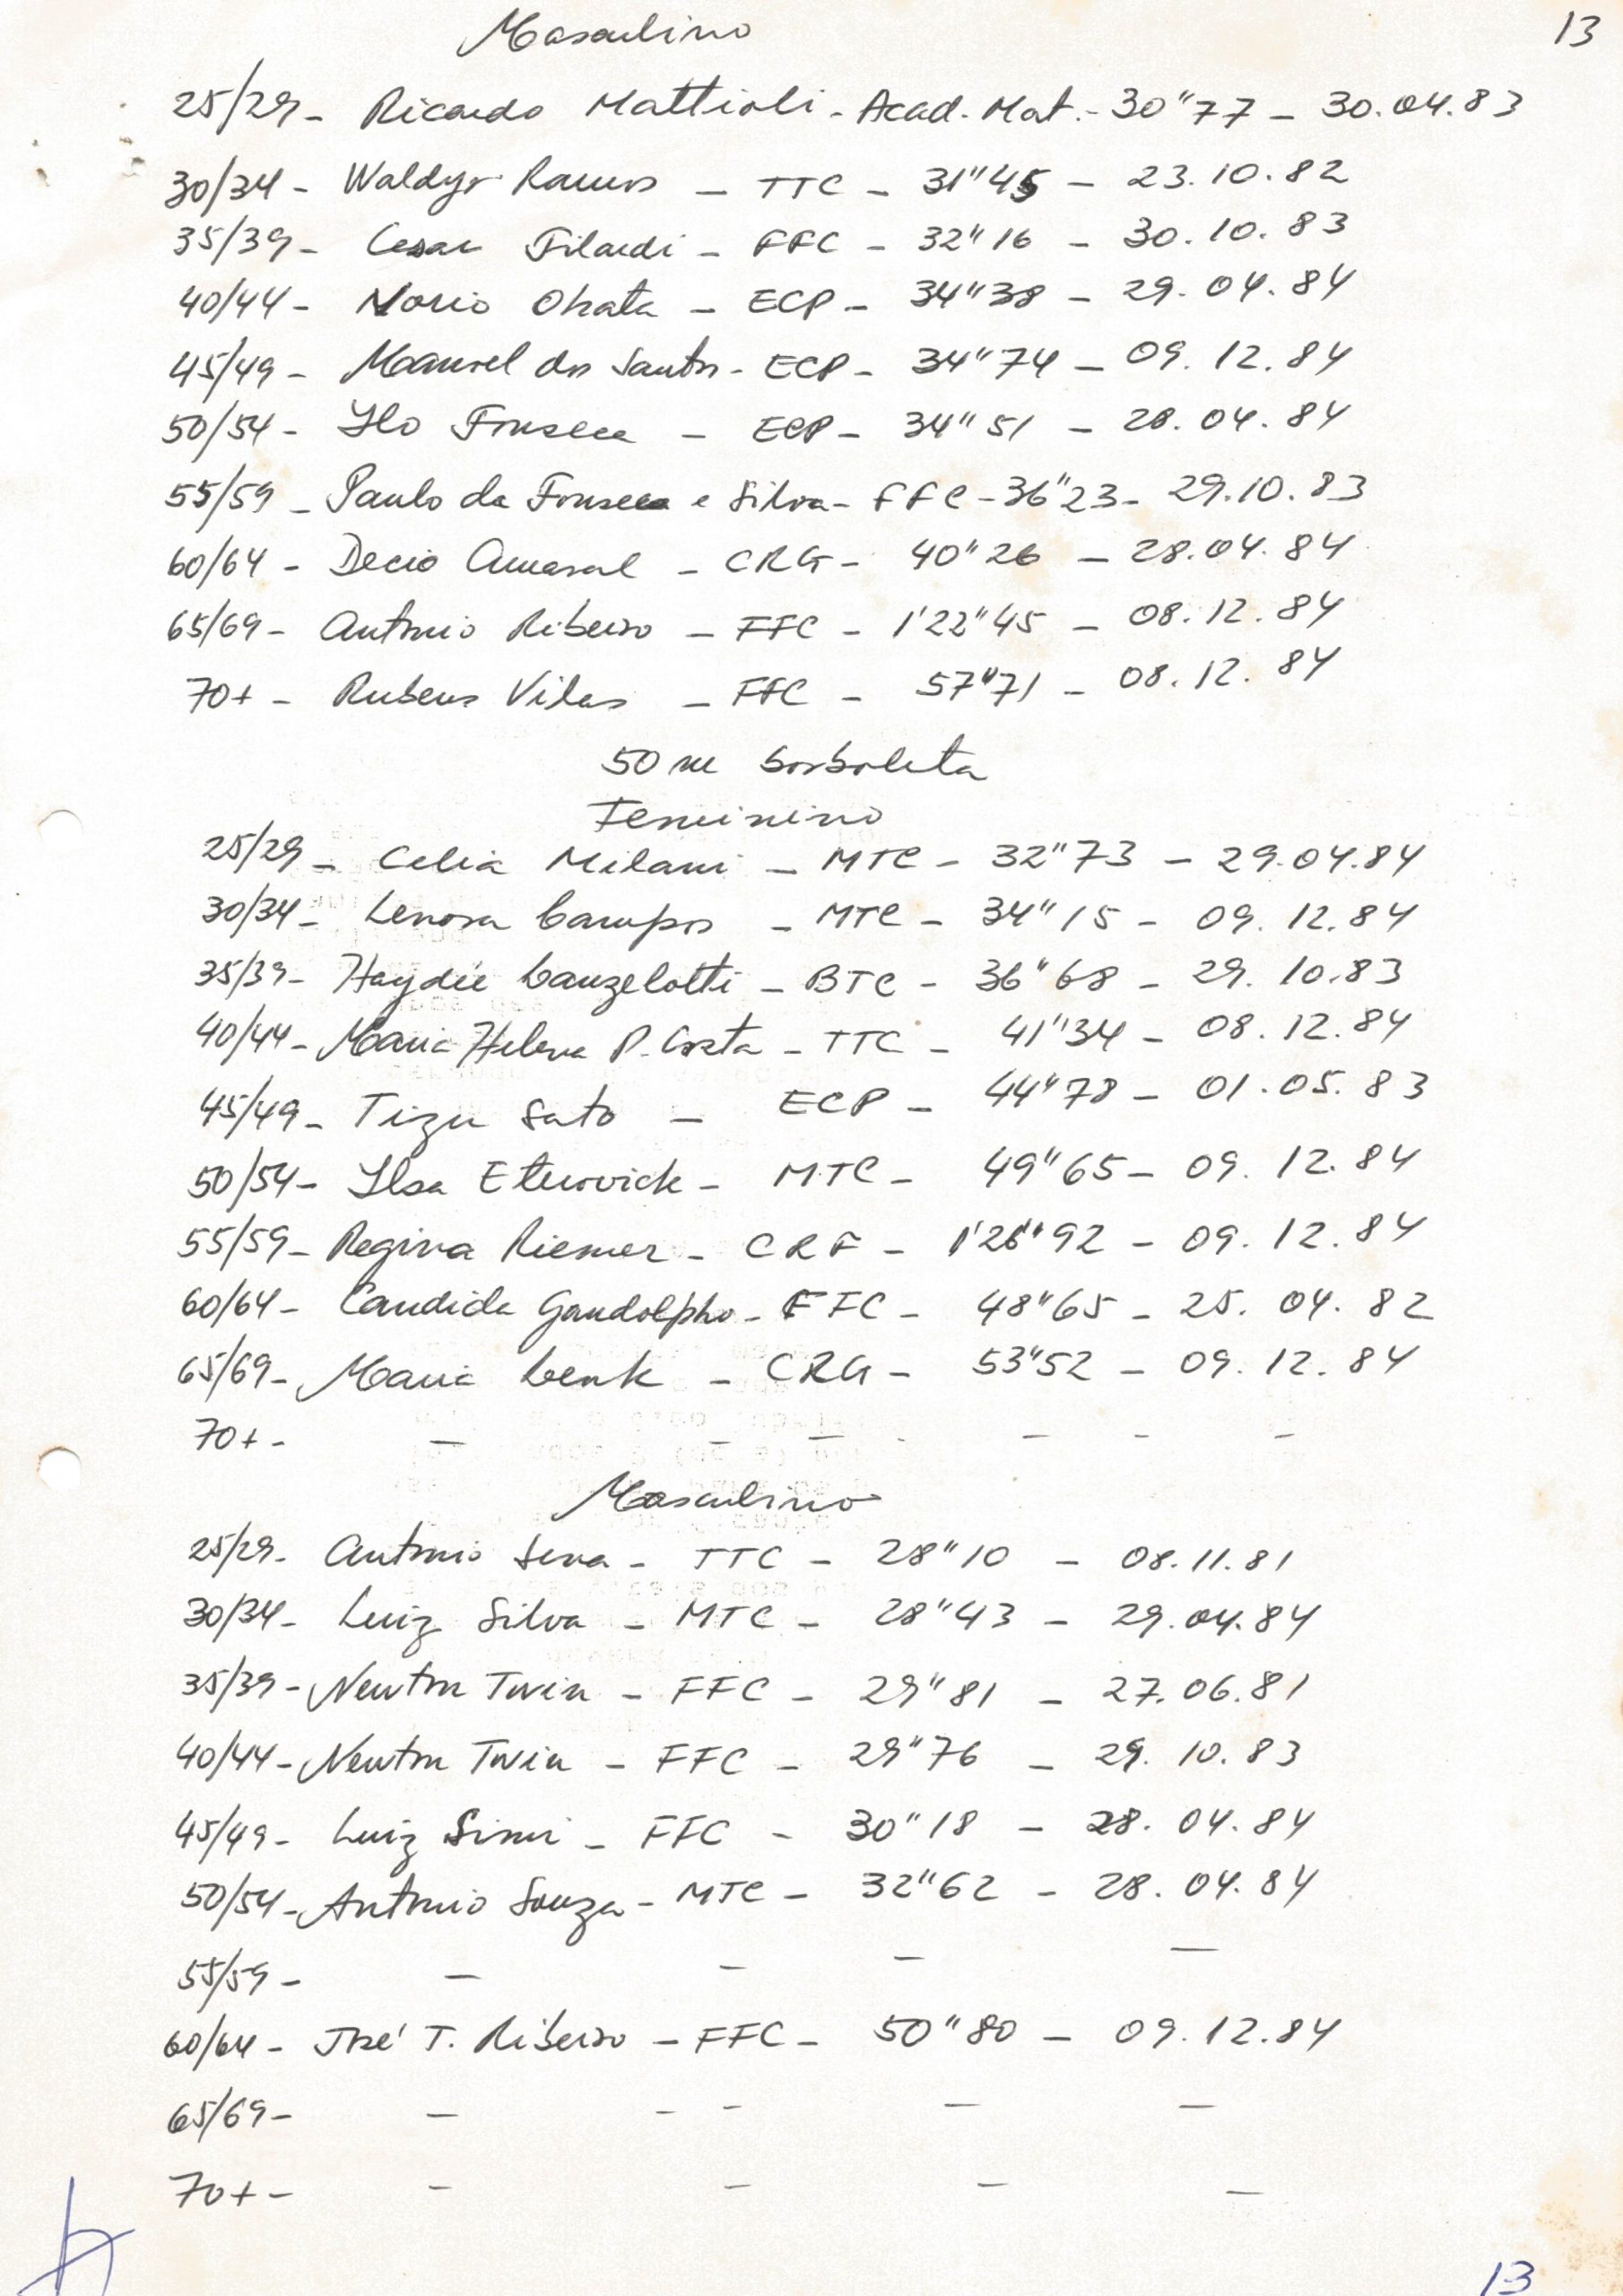 13
Masculino
25/29 - Ricardo Mattioli - Acad. Mat. - 30"77 - 30.04.83
30/34 - Waldyr Ramos - TTC - 31"45 - 23.10.82
35/39 - Cesar Filardi - FFC - 32"16 - 30.10.83
40/44 - Norio Ohata - ECP - 34"38 - 29.04.84
45/49 - Manoel dos Santos - ECP - 34"74 - 09.12.84
50/54 - Ilo Fonseca - ECP - 34"51 - 28.04.84
55/59 - Paulo da Fonseca e Silva - FFC - 36"23 - 29.10.83
60/64 - Decio Amaral - CRG - 40"26 - 28.04.84
65/69 - Antonio Ribeiro - FFC - 1'22"45 - 08.12.84
70+ - Rubens Vilas - FFC - 57"71 - 08.12.84
50 m borboleta
Feminino
25/29 - Celia Milani - MTC - 32"73 - 29.04.84
30/34 - Lenora Campos - MTC - 34"15 - 09.12.84
35/39 - Haydée Canzelotti - BTC - 36"68 - 29.10.83
40/44 - Maria Helena P. Costa - TTC - 41"34 - 08.12.84
45/49 - Tizu Sato - ECP - 44"78 - 01.05.83
50/54 - Ilsa - MTC - 49"65 - 09.12.84
55/59 - Regina Riemer - CRF - 1'26"92 - 09.12.84
60/64 - Candida Gandolpho - FFC - 48"65 - 25.04.82
65/69 - Maria Lenk - CRG - 53"52 - 09.12.84
70+ - - - - - - -
Masculino
25/29 - Antonio Sena - TTC - 28"10 - 08.11.81
30/34 - Luiz Silva - MTC - 28"43 - 29.04.84
35/39 - Newton - FFC - 29"81 - 27.06.81
40/44 - Newton - FFC - 29"76 - 29.10.83
45/49 - Luiz - FFC - 30"18 - 28.04.84
50/54 - Antonio Souza - MTC - 32"62 - 28.04.84
55/59 - - - - -
60/64 - José T. Ribeiro - FFC - 50"80 - 09.12.84
65/69 - - - - - -
70+ - - - - -
13